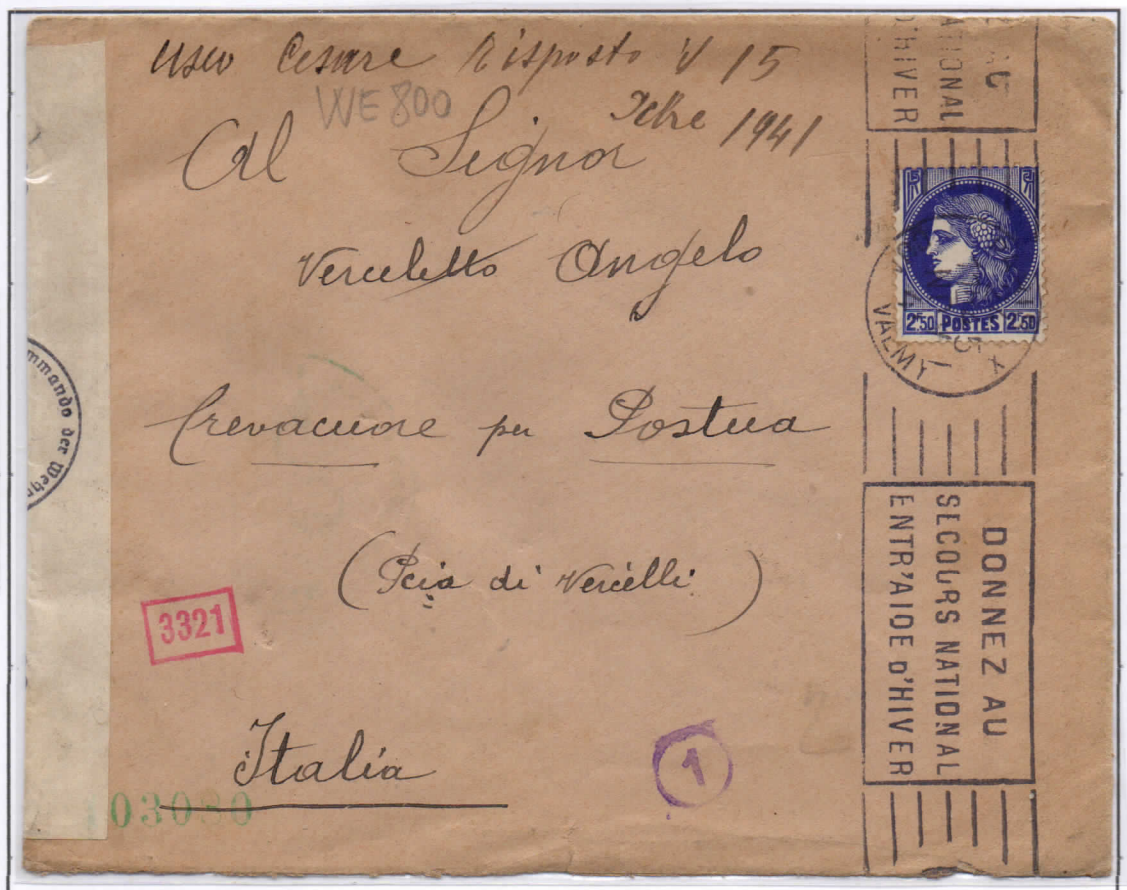 Cesare Risposto il 15
WE 800
1941
Al Signor
Vercelotto Angelo
Crevacuore per Postua
(Pcia di Vercelli)
Italia
3321
1
03080
mmando der Weh
ATIONAL
D'HIVER
2F50 POSTES 2F50
VALMY
DONNEZ AU
SECOURS NATIONAL
ENTR'AIDE D'HIVER